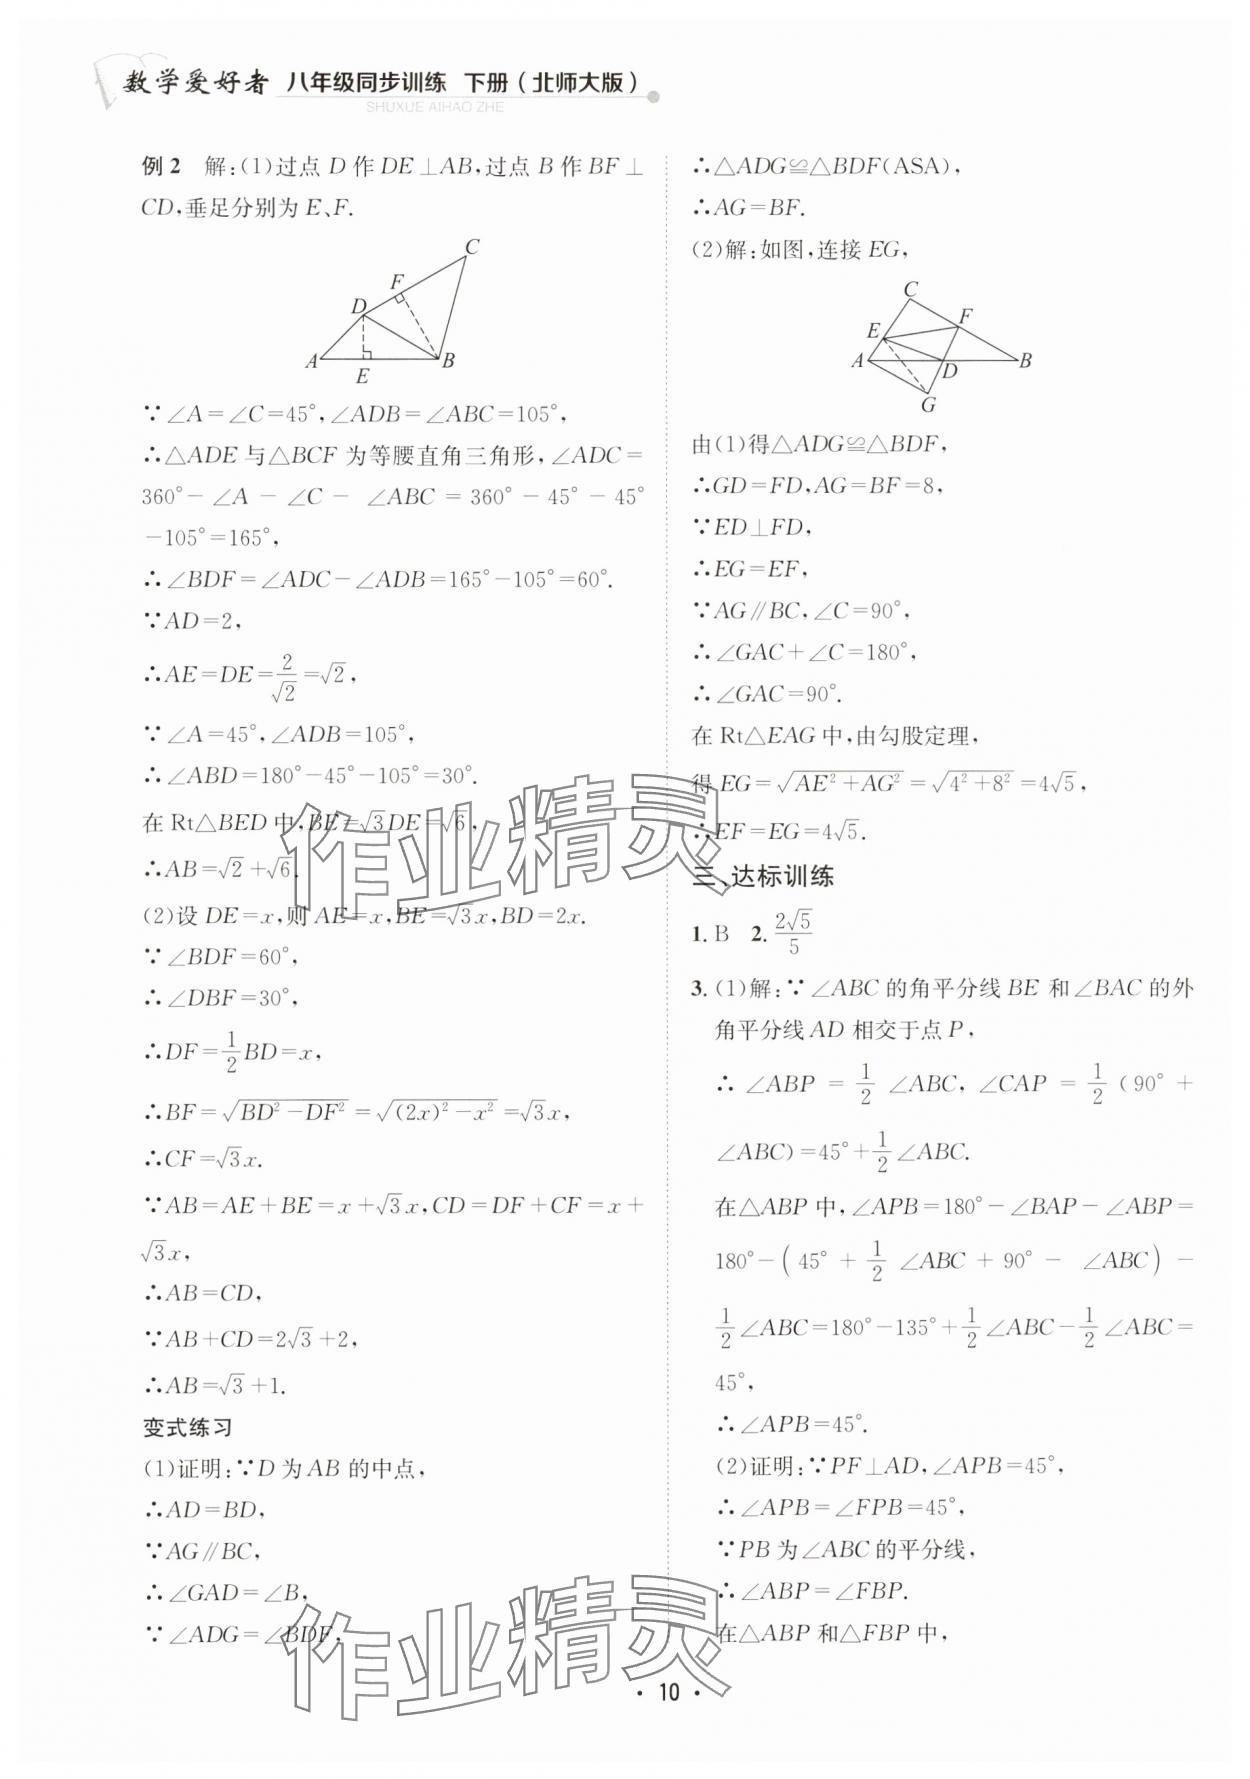 数学爱好者 八年级同步训练 下册(北师大版)
SHUXUE AIHAO ZHE
例2 解:(1)过点 D 作 DE⊥AB,过点 B 作 BF⊥
CD,垂足分别为 E、F.
C
F
D
A
E
B
∵∠A=∠C=45°,∠ADB=∠ABC=105°,
∴△ADE 与△BCF 为等腰直角三角形,∠ADC=
360°-∠A-∠C-∠ABC=360°-45°-45°
-105°=165°,
∴∠BDF=∠ADC-∠ADB=165°-105°=60°.
∵AD=2,
∴AE=DE=2/√2=√2,
∵∠A=45°,∠ADB=105°,
∴∠ABD=180°-45°-105°=30°.
在 Rt△BED 中,BE=√3DE=√6,
∴AB=√2+√6.
(2)设 DE=x,则 AE=x,BE=√3x,BD=2x.
∵∠BDF=60°,
∴∠DBF=30°,
∴DF=1/2BD=x,
∴BF=√(BD²-DF²)=√((2x)²-x²)=√3x,
∴CF=√3x.
∵AB=AE+BE=x+√3x,CD=DF+CF=x+
√3x,
∴AB=CD,
∵AB+CD=2√3+2,
∴AB=√3+1.
变式练习
(1)证明:∵D 为 AB 的中点,
∴AD=BD,
∵AG∥BC,
∴∠GAD=∠B,
∵∠ADG=∠BDF,
∴△ADG≌△BDF(ASA),
∴AG=BF.
(2)解:如图,连接 EG,
C
F
E
A
D
B
G
由(1)得△ADG≌△BDF,
∴GD=FD,AG=BF=8,
∵ED⊥FD,
∴EG=EF,
∵AG∥BC,∠C=90°,
∴∠GAC+∠C=180°,
∴∠GAC=90°.
在 Rt△EAG 中,由勾股定理,
得 EG=√(AE²+AG²)=√(4²+8²)=4√5,
∴EF=EG=4√5.
三、达标训练
1. B 2. 2√5/5
3. (1)解:∵∠ABC 的角平分线 BE 和∠BAC 的外
角平分线 AD 相交于点 P,
∴∠ABP=1/2∠ABC,∠CAP=1/2(90°+
∠ABC)=45°+1/2∠ABC.
在△ABP 中,∠APB=180°-∠BAP-∠ABP=
180°-(45°+1/2∠ABC+90°-∠ABC)-
1/2∠ABC=180°-135°+1/2∠ABC-1/2∠ABC=
45°,
∴∠APB=45°.
(2)证明:∵PF⊥AD,∠APB=45°,
∴∠APB=∠FPB=45°,
∵PB 为∠ABC 的平分线,
∴∠ABP=∠FBP.
在△ABP 和△FBP 中,
作业精灵
作业精灵
· 10 ·